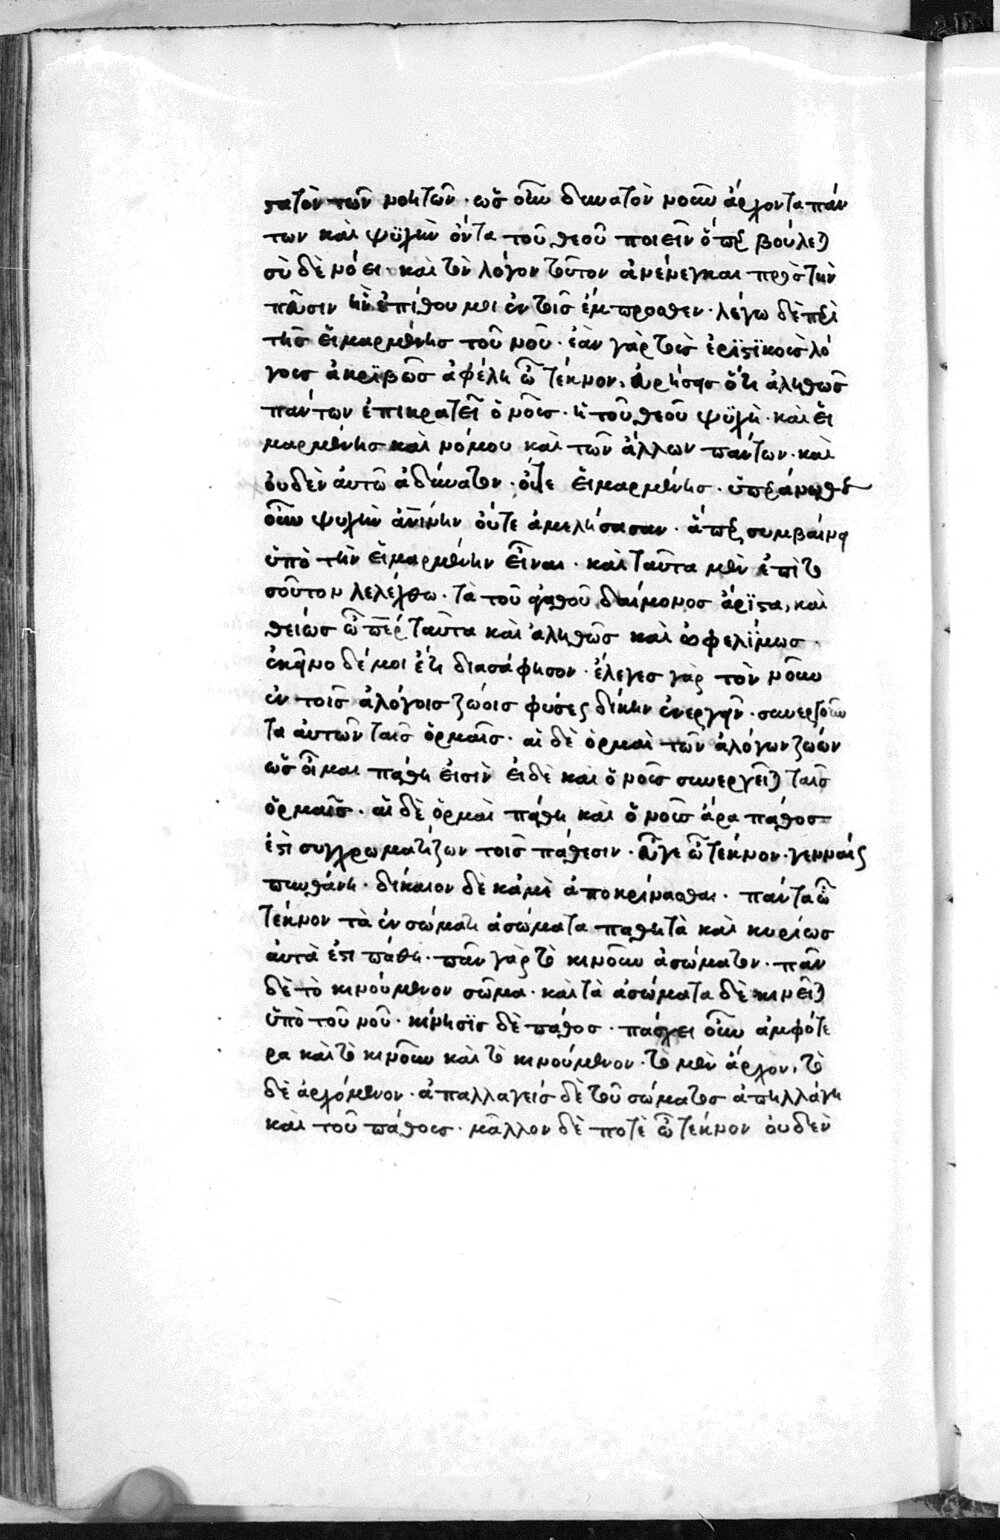 στατὸν τῶν νοητῶν· ὡς οὖν δυνατὸν νοῦν ἄρχοντα πάν
των καὶ ψυχὴν ὄντα τοῦ θεοῦ ποιεῖν ὅπερ βούλεται
σὺ δὲ νόει· καὶ τὸν λόγον τοῦτον ἀνένεγκαι πρὸς τὴν
πεῦσιν ἣν ἐπίθου μοι ἐν τοῖς ἔμπροσθεν· λέγω δὲ περὶ
τῆς εἱμαρμένης τοῦ νοῦ· ἐὰν γὰρ τοὺς ἐριστικοὺς λό
γους ἀκριβῶς ἀφέλῃ ὦ τέκνον, εὑρήσεις ὅτι ἀληθῶς
πάντων ἐπικρατεῖ ὁ νοῦς· ἡ τοῦ θεοῦ ψυχὴ· καὶ εἱ
μαρμένης καὶ νόμου καὶ τῶν ἄλλων πάντων· καὶ
οὐδὲν αὐτῷ ἀδύνατον· οὔτε εἱμαρμένης· ὑπεράνω θε
οὖν ψυχὴν ἀνίνην οὔτε ἀμελήσασαν· ἅπερ συμβαίνει
ὑπὸ τὴν εἱμαρμένην εἶναι· καὶ ταῦτα μὲν ἐπὶ το
σοῦτον λελέχθω· τὰ τοῦ ἀγαθοῦ δαίμονος ἄριστα, καὶ
θείως ὦ πάτερ ταῦτα καὶ ἀληθῶς καὶ ὠφελίμως·
ἐκεῖνο δέ μοι ἔτι διασάφησον· ἔλεγες γὰρ τὸν νοῦν
ἐν τοῖς ἀλόγοις ζώοις φύσεως δίκην ἐνεργεῖν· συνεργοῦν
τα αὐτῶν ταῖς ὁρμαῖς· αἱ δὲ ὁρμαὶ τῶν ἀλόγων ζώων
ὡς οἶμαι πάθη εἰσὶν εἰ δὲ καὶ ὁ νοῦς συνεργεῖται ταῖς
ὁρμαῖς· αἱ δὲ ὁρμαὶ πάθη καὶ ὁ νοῦς ἄρα πάθος
ἐστὶ συγχρωματίζων τοῖς πάθεσιν· εὖγε ὦ τέκνον· γενναίως
πυνθάνῃ· δίκαιον δὲ κἀμὲ ἀποκρίνασθαι· πάντα ὦ
τέκνον τὰ ἐν σώματι ἀσώματα παθητὰ καὶ κυρίως
αὐτά ἐστι πάθη· πᾶν γὰρ τὸ κινοῦν ἀσώματον· πᾶν
δὲ τὸ κινούμενον σῶμα· καὶ τὰ ἀσώματα δὲ κινεῖται
ὑπὸ τοῦ νοῦ· κίνησις δὲ πάθος· πάσχει οὖν ἀμφότε
ρα καὶ τὸ κινοῦν καὶ τὸ κινούμενον· τὸ μὲν ἄρχον, τὸ
δὲ ἀρχόμενον· ἀπαλλαγεὶς δὲ τοῦ σώματος ἀπηλλάγη
καὶ τοῦ πάθους· μᾶλλον δέ ποτὲ ὦ τέκνον οὐδὲν